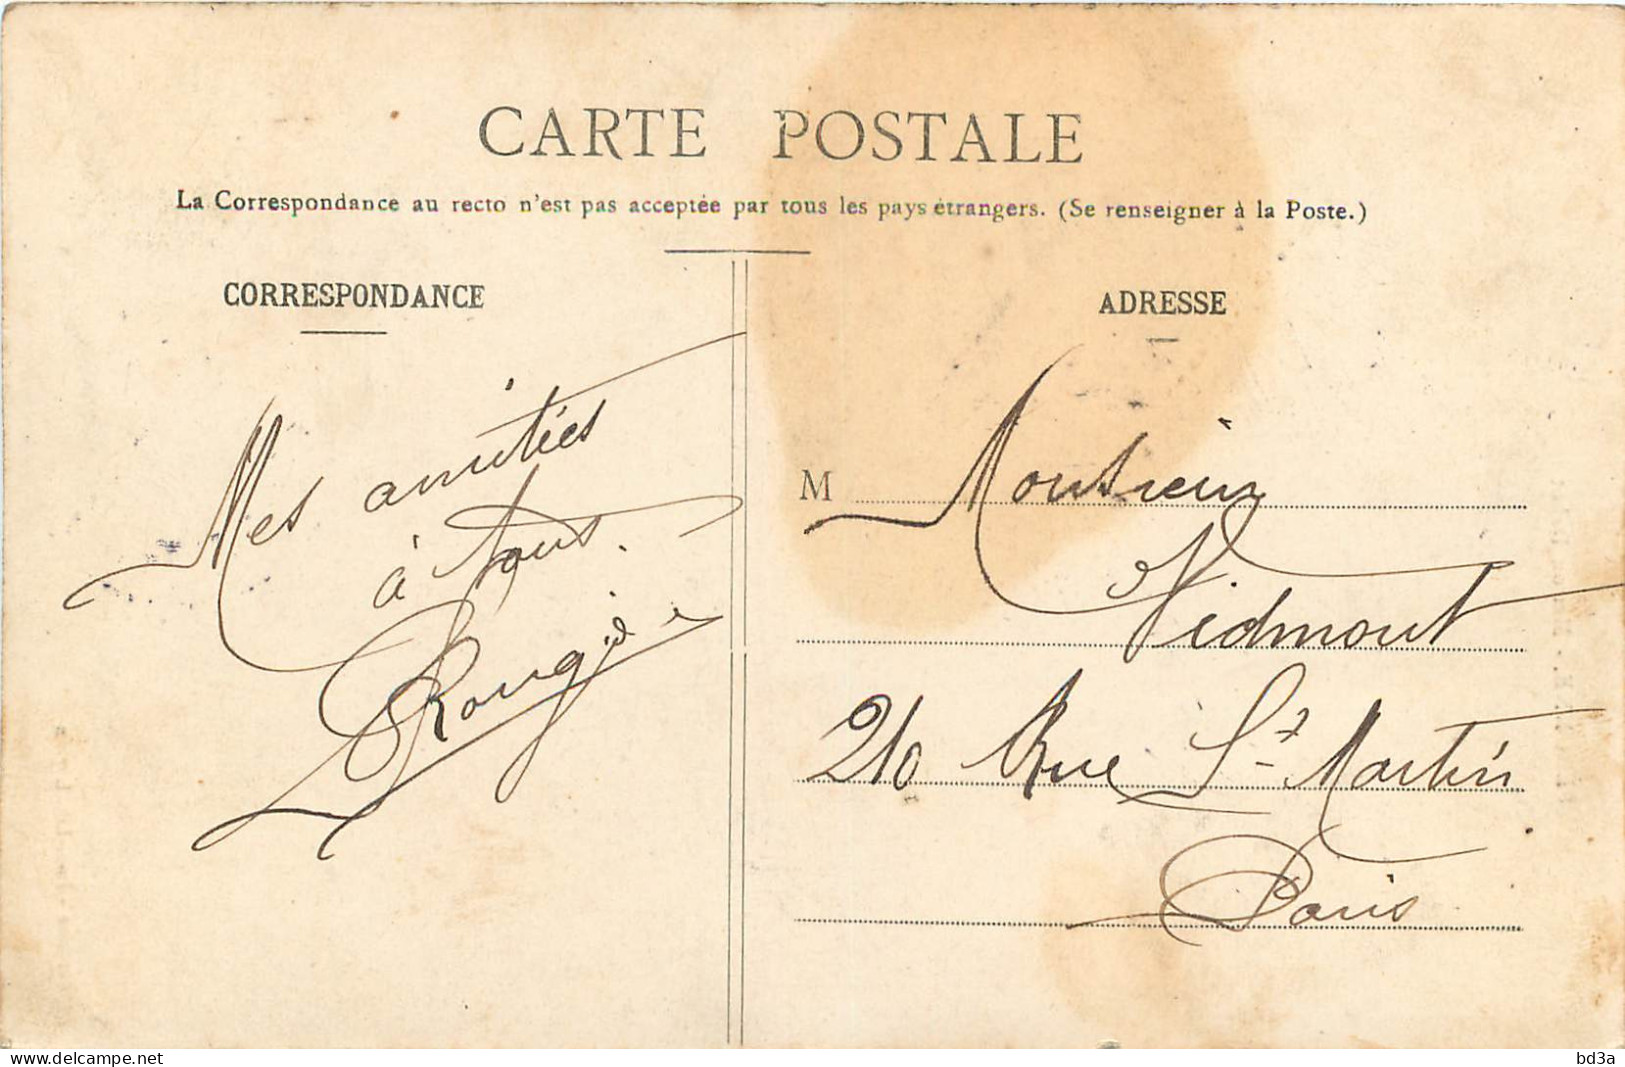 CARTE POSTALE
La Correspondance au recto n'est pas acceptée par tous les pays étrangers. (Se renseigner à la Poste.)
CORRESPONDANCE
Mes amitiés
à tous.
ADRESSE
M Monsieur
Vidmont
210 Rue St Martin
Paris
delcampe.net
bd3a